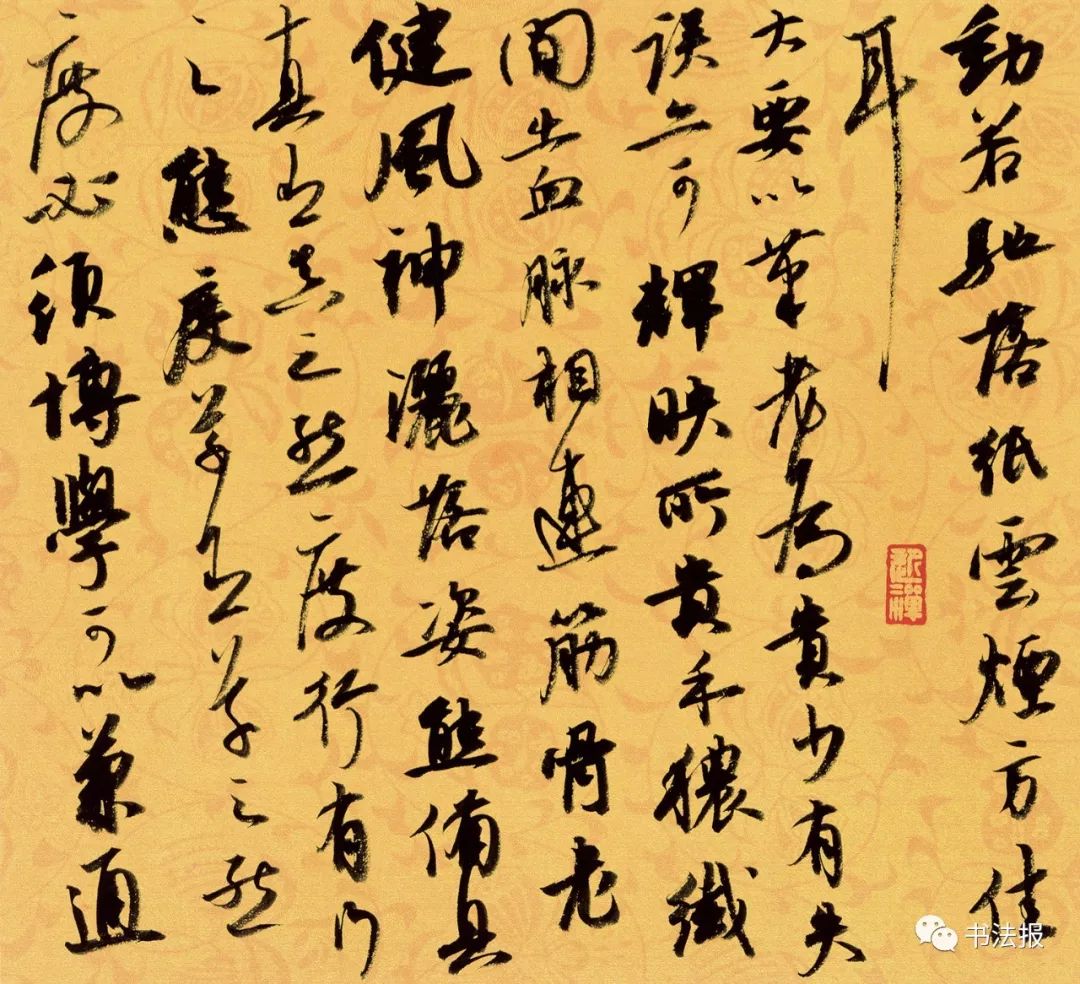 動若馳落紙雲煙方佳
耳
大要以筆老為貴少有失
誤亦可輝映所貴乎穠纖
間出血脉相連筋骨老
健風神灑落姿態備具
真有真之態度行有行
之態度草有草之態
度必須博學可以兼通
书法报